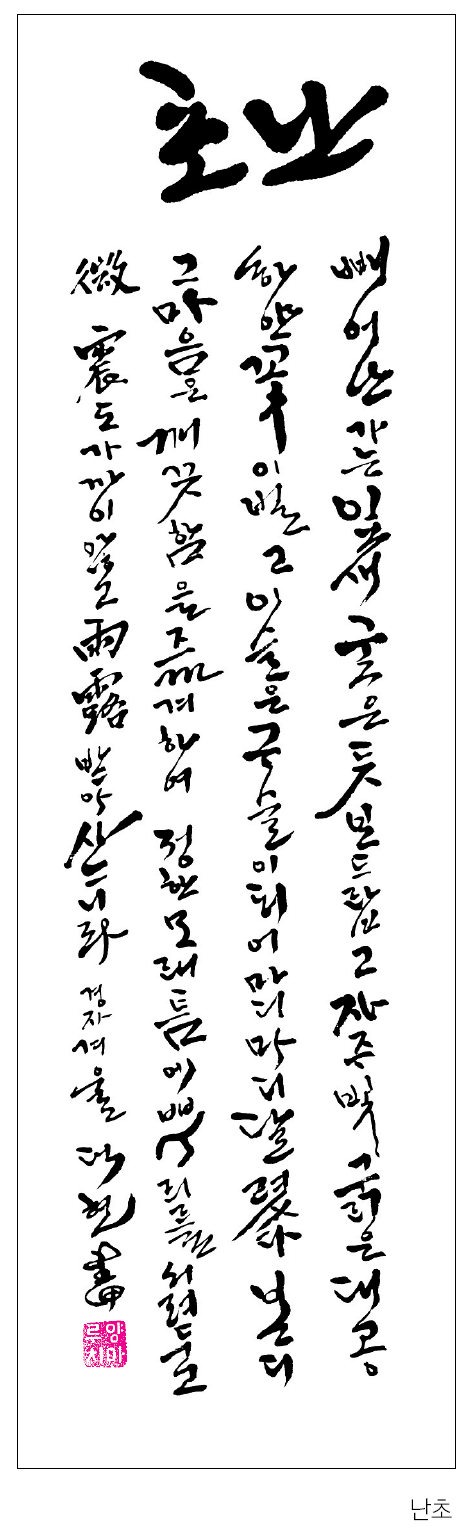 난초
빼어난 가는 잎새 굳은 듯 보드랍고 자주빛 굵은 대공
하얀 꽃이 벌고 이슬은 구슬이 되어 마디마디 달렸다 본디
그 마음은 깨끗함을 즐겨하여 정한 모래틈에 뿌리를 서려두고
微震도 가까이 않고 雨露 받아 사느니라 경자 겨울 다현 書
양마루치
난초